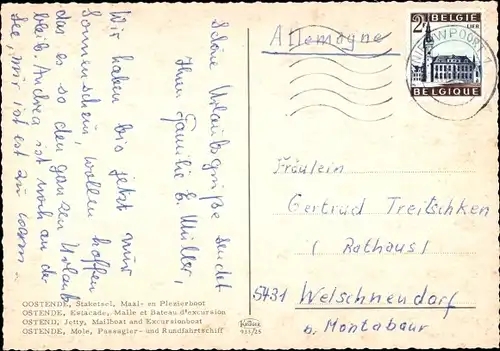 Schöne Urlaubsgrüße sendet
Ihnen Familie E. Müller,
Wir haben bis jetzt nur
Sonnenschein, wollen hoffen
das es so den ganzen Urlaub
bleib. Andrea ist noch an der
See, mir ist est zu warm.
OOSTENDE, Staketsel, Maal- en Plezierboot
OSTENDE, Estacade, Malle et Bateau d'excursion
OSTEND, Jetty, Mailboat and Excursionboat
OSTENDE, Mole, Passagier- und Rundfahrtschiff
Allemagne
2F BELGIE
LIER
BELGIQUE
NIEUWPOORT
Fräulein
Gertrud Treitschken
(Rathaus)
5431 Welschneudorf
b. Montabaur